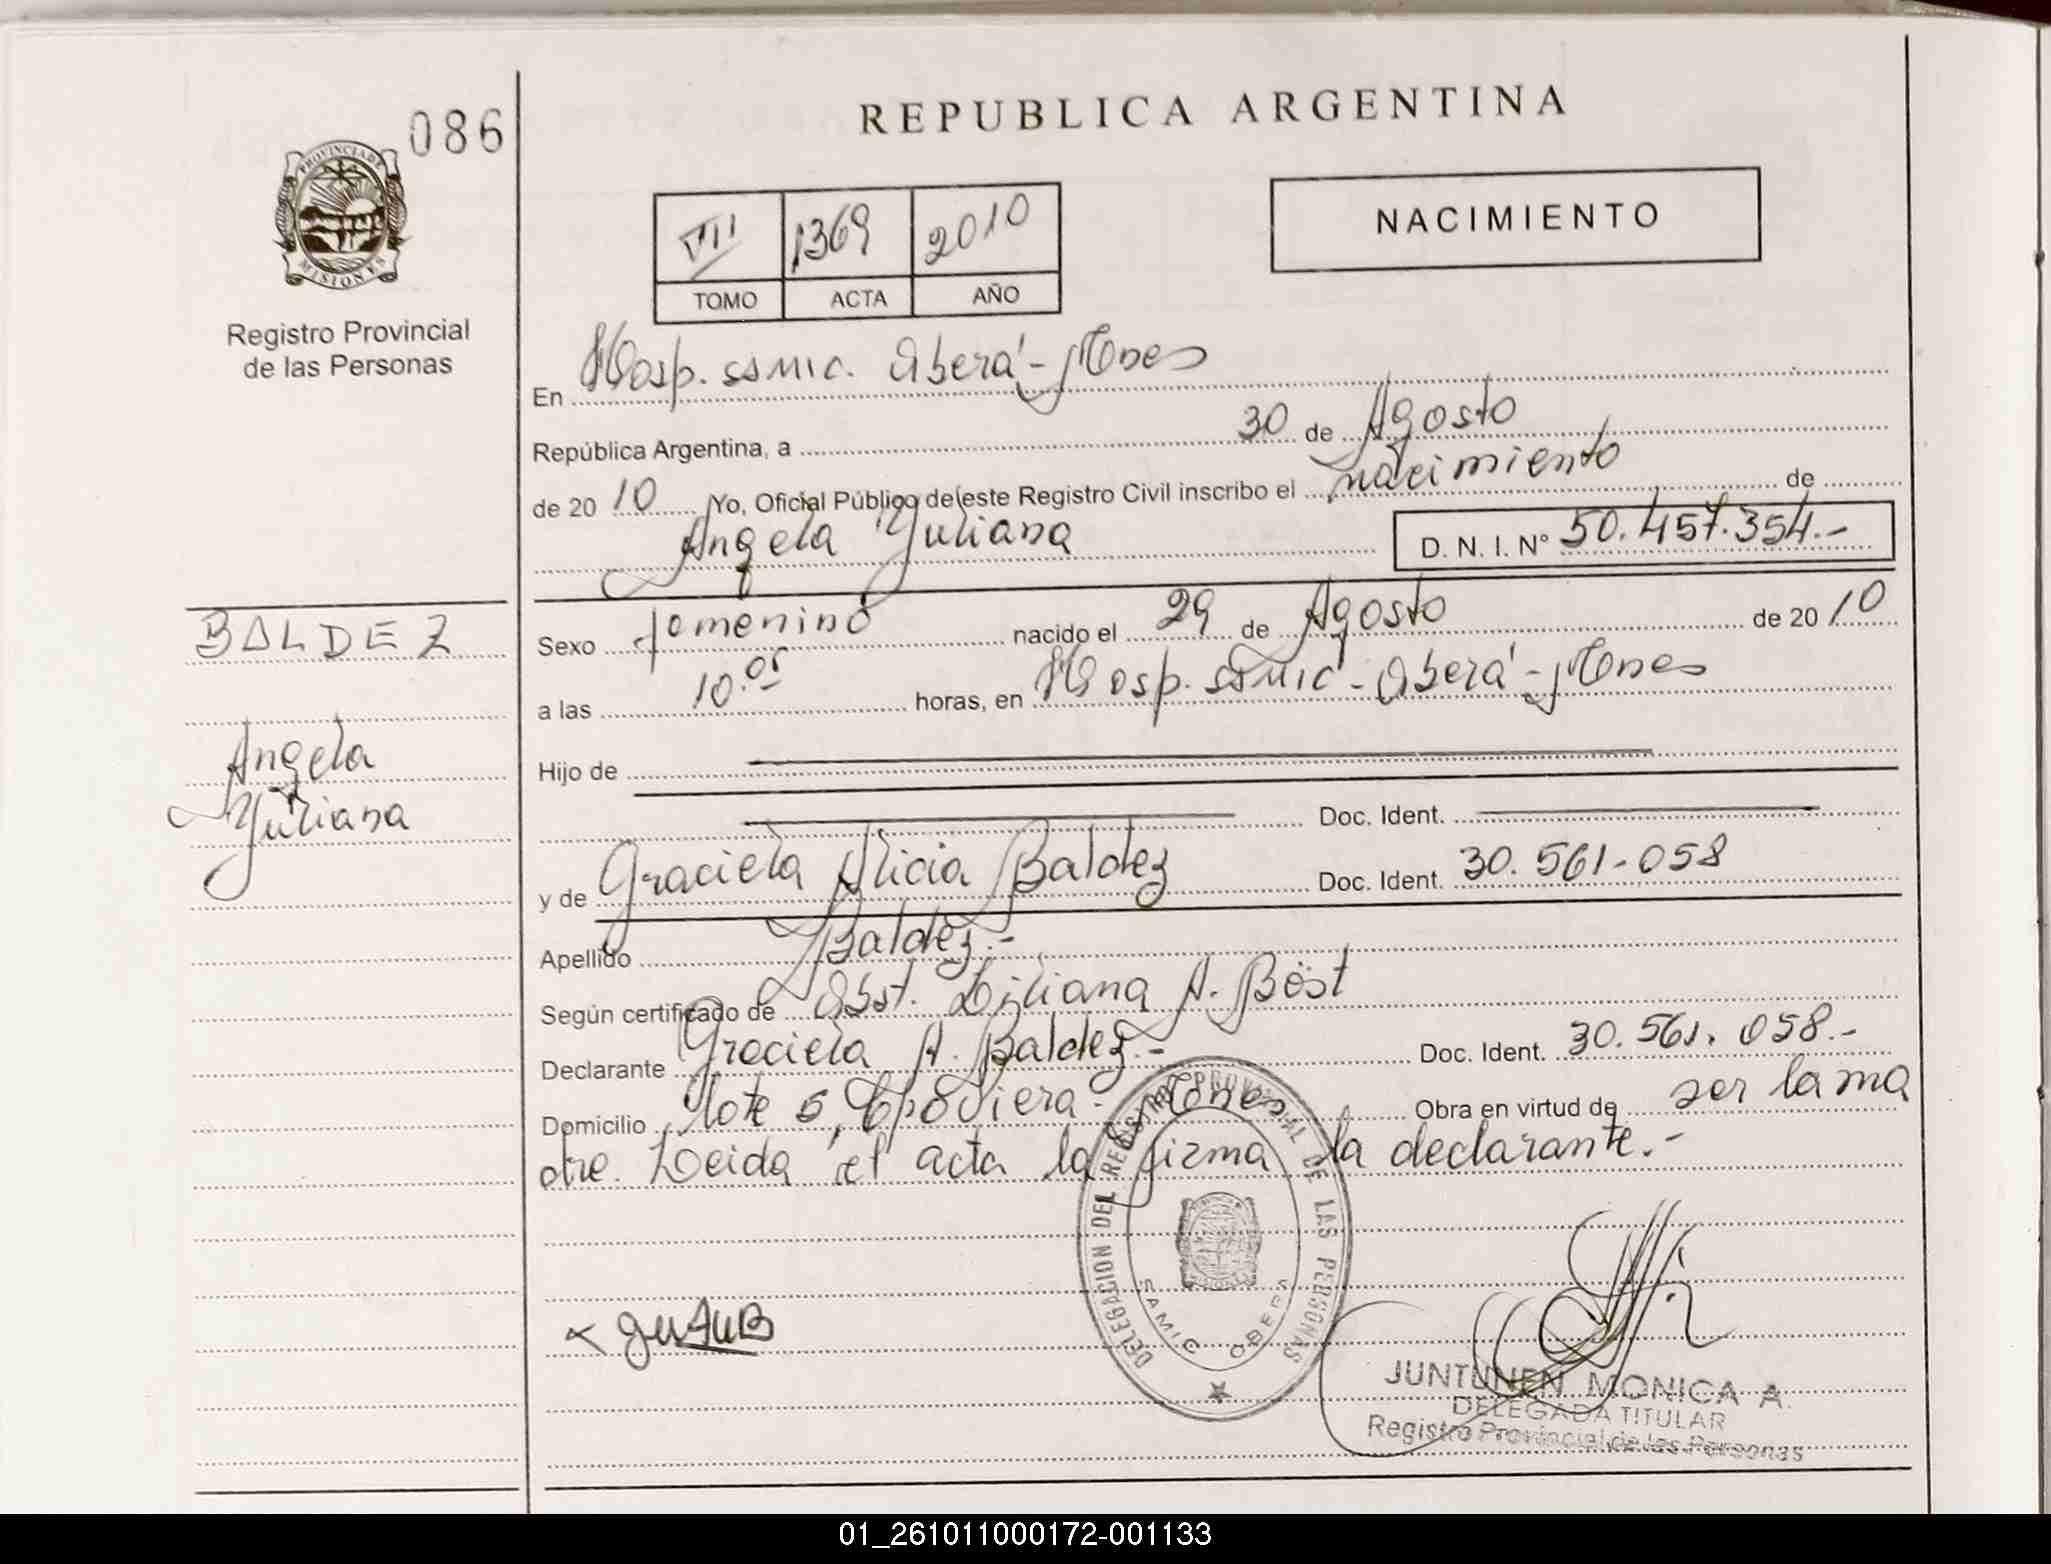 086
PROVINCIA DE
MISIONES
Registro Provincial
de las Personas
BALDEZ
Angela
Yuliana
REPUBLICA ARGENTINA
VII 1369 2010
TOMO ACTA AÑO
NACIMIENTO
En Hosp. SAMIC. Oberá - Mnes
República Argentina, a 30 de Agosto
de 2010 Yo, Oficial Público de este Registro Civil inscribo el nacimiento de
Angela Yuliana D. N. I. N° 50.457.354.-
Sexo femenino nacido el 29 de Agosto de 2010
a las 10.05 horas, en Hosp. SAMIC - Oberá - Mnes
Hijo de
Doc. Ident.
y de Graciela Alicia Baldez Doc. Ident. 30.561-058
Apellido Baldez.-
Según certificado de Obst. Liliana A. Böst
Declarante Graciela A. Baldez.- Doc. Ident. 30.561.058.-
Domicilio Lote 5, Mnes Obra en virtud de ser la ma
dre. Leida el acta la firma la declarante.-
DELEGACION DEL REGISTRO PROVINCIAL DE LAS PERSONAS
SAMIC OBERA
JUNTUNEN MONICA A.
DELEGADA TITULAR
Registro Provincial de las Personas
01_261011000172-001133